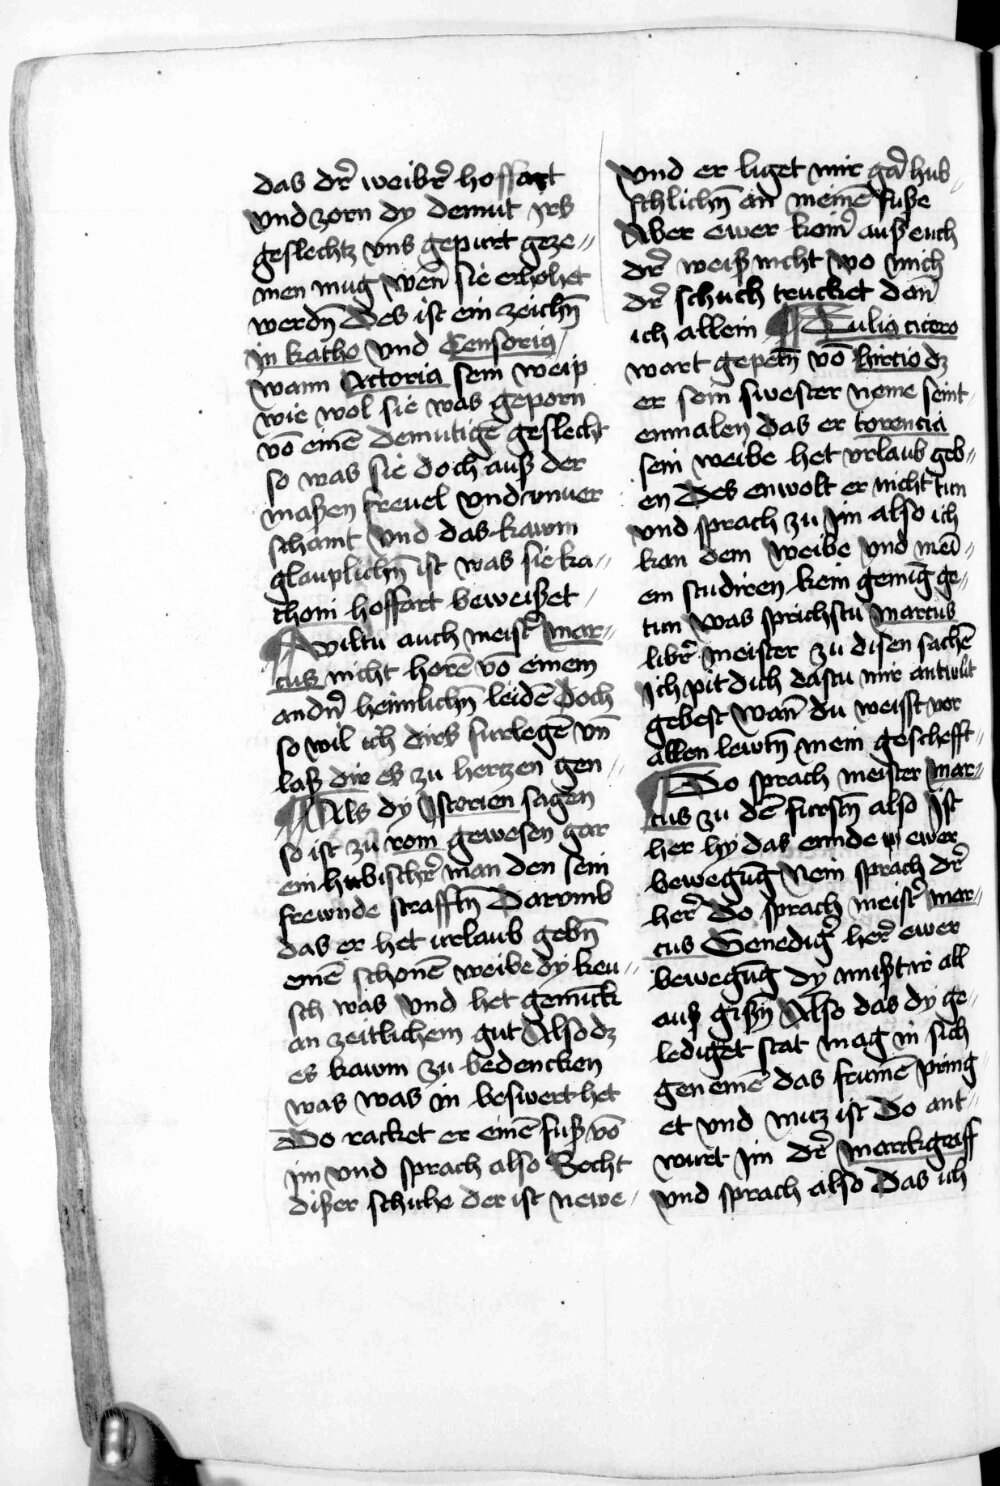 das dr̄ weibr̄ hoffart
Vnd zorn dy demut irs
geslechtz vns gepurt geze//
men mug wen̄ sie erhohet
werdn̄ Des ist ein zeichn̄
in katho vnd Censoria
wann Actoria sein weip
wie wol sie was geporn
vō einē demutigē geslecht
so was sie doch auß der
maßen freuel vnd vnuer
schamt vnd das kawm
glauplichn̄ ist was sie ka//
thoni hoffart beweißet /
Wiltu auch meistr̄ mar//
cus nicht horē vō einem
andn̄ heimlichn̄ leidē Doch
so wil ich dirs furlegē vn̄
laß dir es zu hertzen gen //
Als dy Istorien sagen
so ist zu rom gewesen gar
ein hubischr̄ man den sein
frewnde strafftn̄ Darvmb
das er het urlaub gebn̄
einē schonē weibe dy keu//
sch was vnd het gemuck
an zeitlichem gut Also dz
es kawm zu bedencken
was was in beswert het
Do racket er einē fuß vō
im vnd sprach also Secht
dißer schuhe der ist newe /
Vnd er liget mir gar̄ hub /
schlichn̄ an meinē fuße
Aber ewer keinr̄ auß euch
dr̄ weiß nicht wo mich
dr̄ schuch trucket den̄
ich allein Tulius cicero
wart gepetn̄ vō hircio dz
er sein swester neme seint
enmalen das er torencia
sein weibe het vrlaub geb//
en Des enwolt er nicht tun
vnd sprach zu im also ich
kan dem weibe vnd mei̅//
em studiren kein genug̅ ge//
tun was sprichstu marcus
librʼ meister zu disen sachē
Ich pit dich dastu mir antwurt
gebest wan̄ du weisst vor
allen lewtn̄ mein geschefft//
Do sprach meister mar//
cus zu dē furstn̄ also Ist
her hy das ennde ewer
bewegu̅g Nein sprach dr̄
her̄ Do sprach meistr̄ mar//
cus Genedigr̄ her̄ ewer
bewegu̅g dy mußt ir all
auß gißn̄ Also das dy ge//
lediget stat mag in sich
gen einē das frumē pring
et vnd nutz ist Do ant//
wurt im dr̄ marckgraff
vnd sprach also Das ich